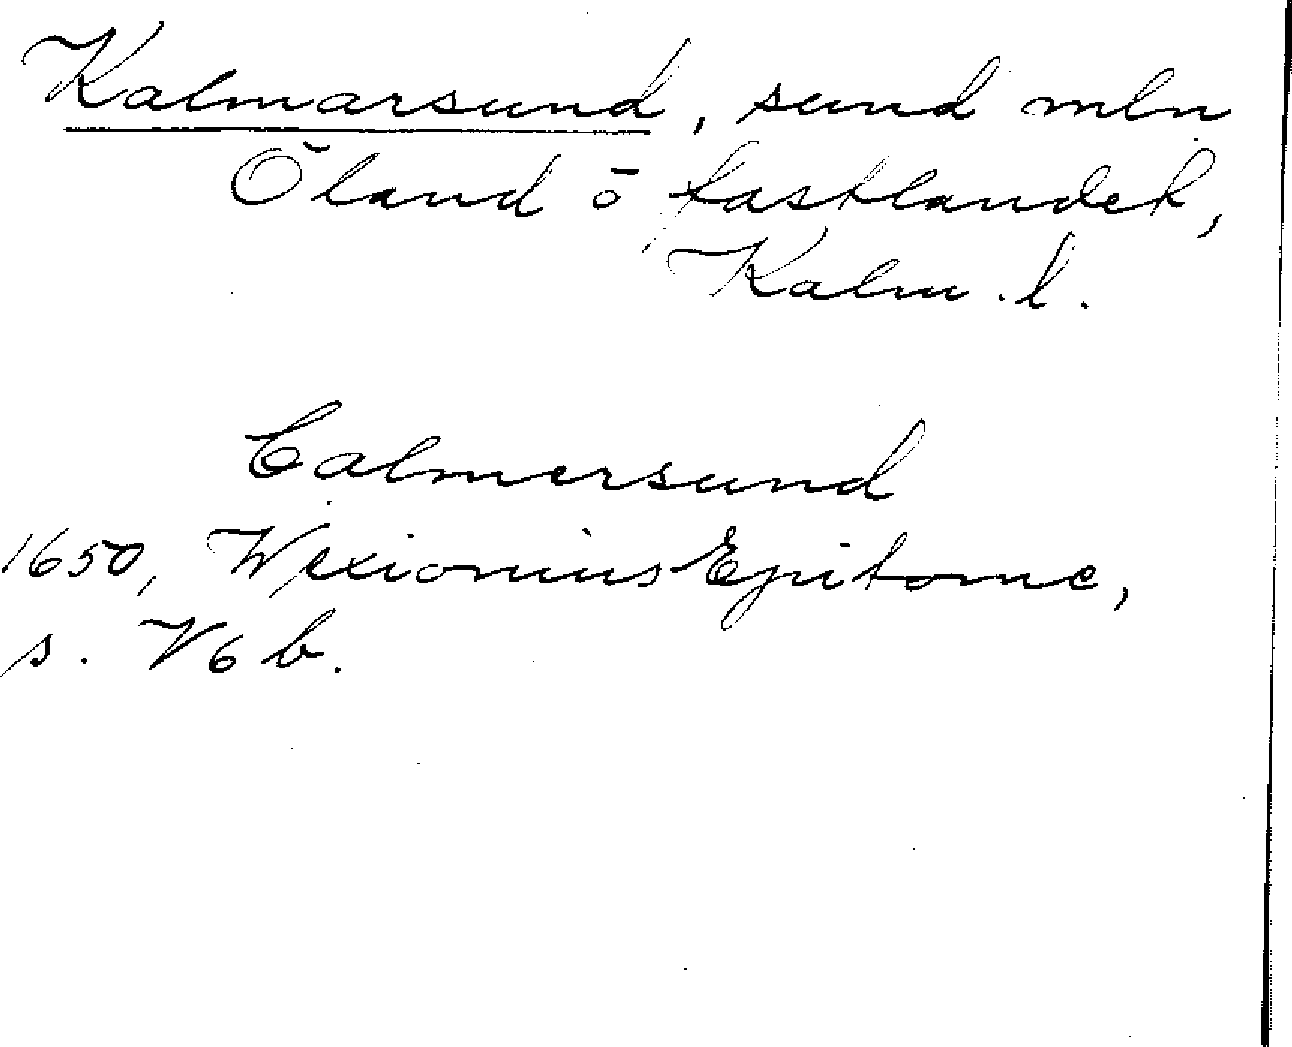 Kalmarsund, sund mln
Öland o fastlandet,
Kalm. l.
Calmersund
1650, Wexionius Epitome,
s. V6b.